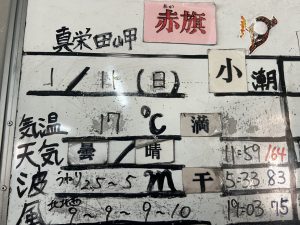 真栄田岬 赤旗
1/11(日) 小潮
気温 17℃ 満
天気 曇/晴 11=59 164
波 うねり2.5~5m 干 5=33 83
風 北北西 9~9~9~10 19=03 75